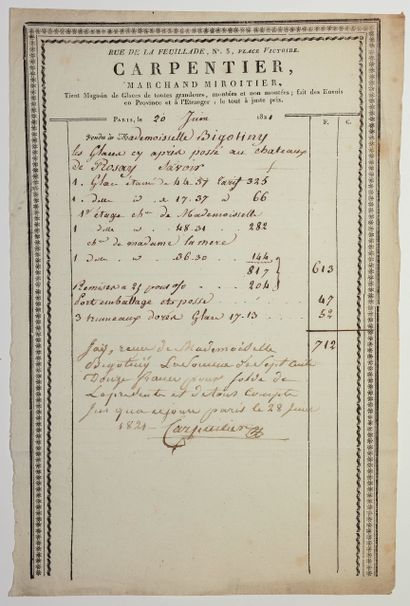 RUE DE LA FEUILLADE, N°. 5, PLACE VICTOIRE.
CARPENTIER,
MARCHAND MIROITIER,
Tient Magasin de Glaces de toutes grandeurs, montées et non montées; fait des Envois
en Province et à l'Etranger, le tout à juste prix.
PARIS, le 20 Juin 1821 F. C.
Vendu à Mademoiselle Bigotiny
les Glaces cy après posé au chateaux
de Rosay Savoir
1. Glace étamé de 44.57 Tarif 325
1. delle id de 17.37 66
1er étage chre de Mademoiselle
1 delle 48.31 282
chre de madame la mere
1 delle 36.30 144
817 613
Remises a 25 pour 0/0 204
Port emballage et posse 47
3 trumeaux dorés Glace 17.13 52
712
Jais, reçue de Mademoiselle
Bigotiny La Somme de Sept cent
Douze francs pour solde de
La presente et de tous compte
jus qua ce jour paris le 28 Juin
1821 Carpentier